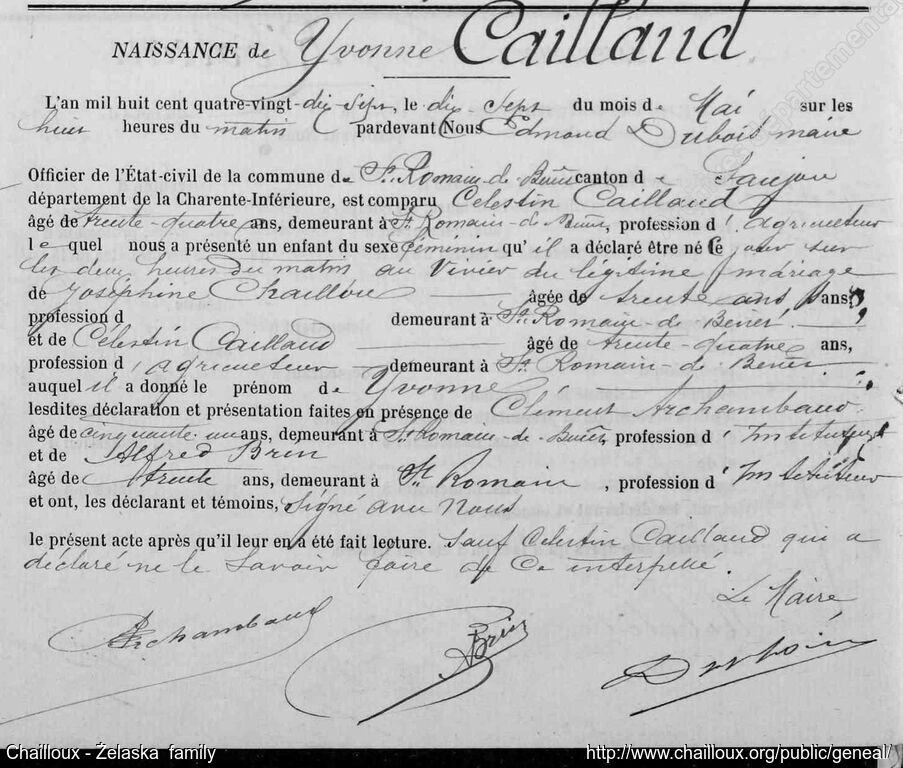 NAISSANCE de Yvonne Caillaud
L'an mil huit cent quatre-vingt-dix sept, le dix-sept du mois de Mai sur les
huit heures du matin pardevant Nous Edmond Dubois maire
Officier de l'État-civil de la commune de St Romain-de-Benet canton de Saujon
département de la Charente-Inférieure, est comparu Celestin Caillaud
âgé de trente-quatre ans, demeurant à St Romain-de-Benet, profession d'agriculteur
lequel nous a présenté un enfant du sexe féminin qu'il a déclaré être né ce jour sur
les deux heures du matin au Vivier du légitime mariage
de Joséphine Chaillou âgée de trente ans ans,
profession d demeurant à St Romain-de-Benet
et de Célestin Caillaud âgé de trente-quatre ans,
profession d'agriculteur demeurant à St Romain-de-Benet
auquel il a donné le prénom de Yvonne
lesdites déclaration et présentation faites en présence de Clément Archambaud
âgé de cinquante un ans, demeurant à St Romain-de-Benet, profession d'Instituteur
et de Alfred Brin
âgé de trente ans, demeurant à St Romain, profession d'Instituteur
et ont, les déclarant et témoins, signé avec nous
le présent acte après qu'il leur en a été fait lecture. sauf Celestin Caillaud qui a
déclaré ne le savoir faire de ce interpellé.
Le Maire,
Archambaud
Brin
Dubois
Chailloux - Żelaska family http://www.chailloux.org/public/geneal/
départementa